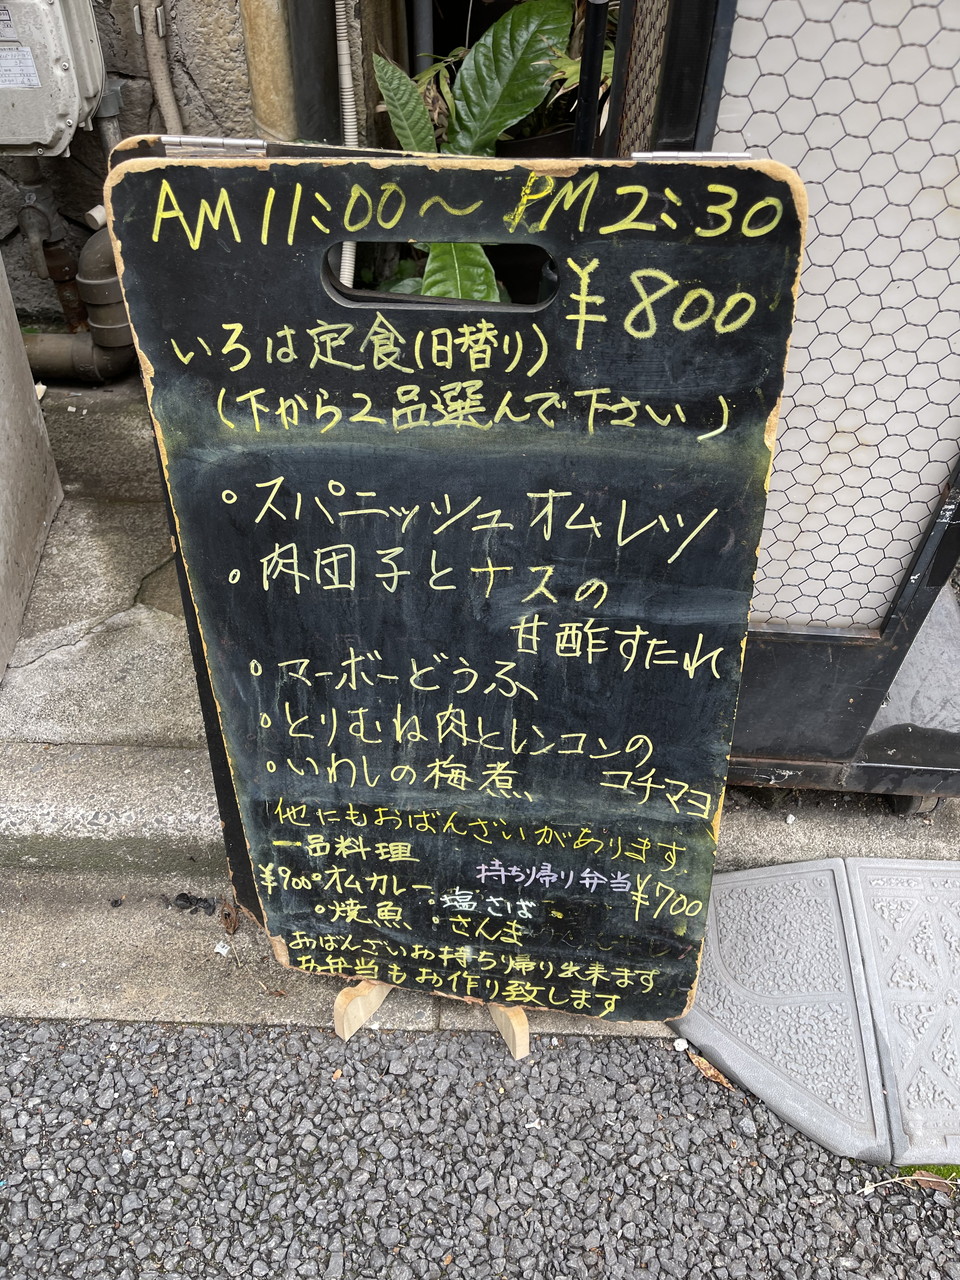 AM 11:00 〜 PM 2:30
¥800
いろは定食(日替り)
(下から2品選んで下さい)
○スパニッシュオムレツ
○肉団子とナスの
甘酢すたれ
○マーボーどうふ
○とりむね肉とレンコンの
コチマヨ
○いわしの梅煮
他にもおばんざいがあります。
一品料理
持ち帰り弁当¥700
¥900○オムカレー
・塩さば
○焼魚
・さんま
おばんざいお持ち帰り出来ます。
お弁当もお作り致します